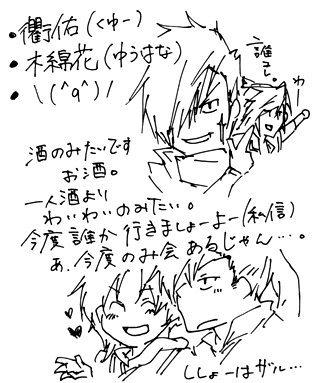 ・衢佑(くゆー)
・木綿花(ゆうはな)
・\(^q^)/
誰て。
わー
酒のみたいです
お酒。
一人酒より
わいわいのみたい。
今度誰か行きましょーよー(私信)
あ、今度のみ会あるじゃん…。
ししょーはザル…